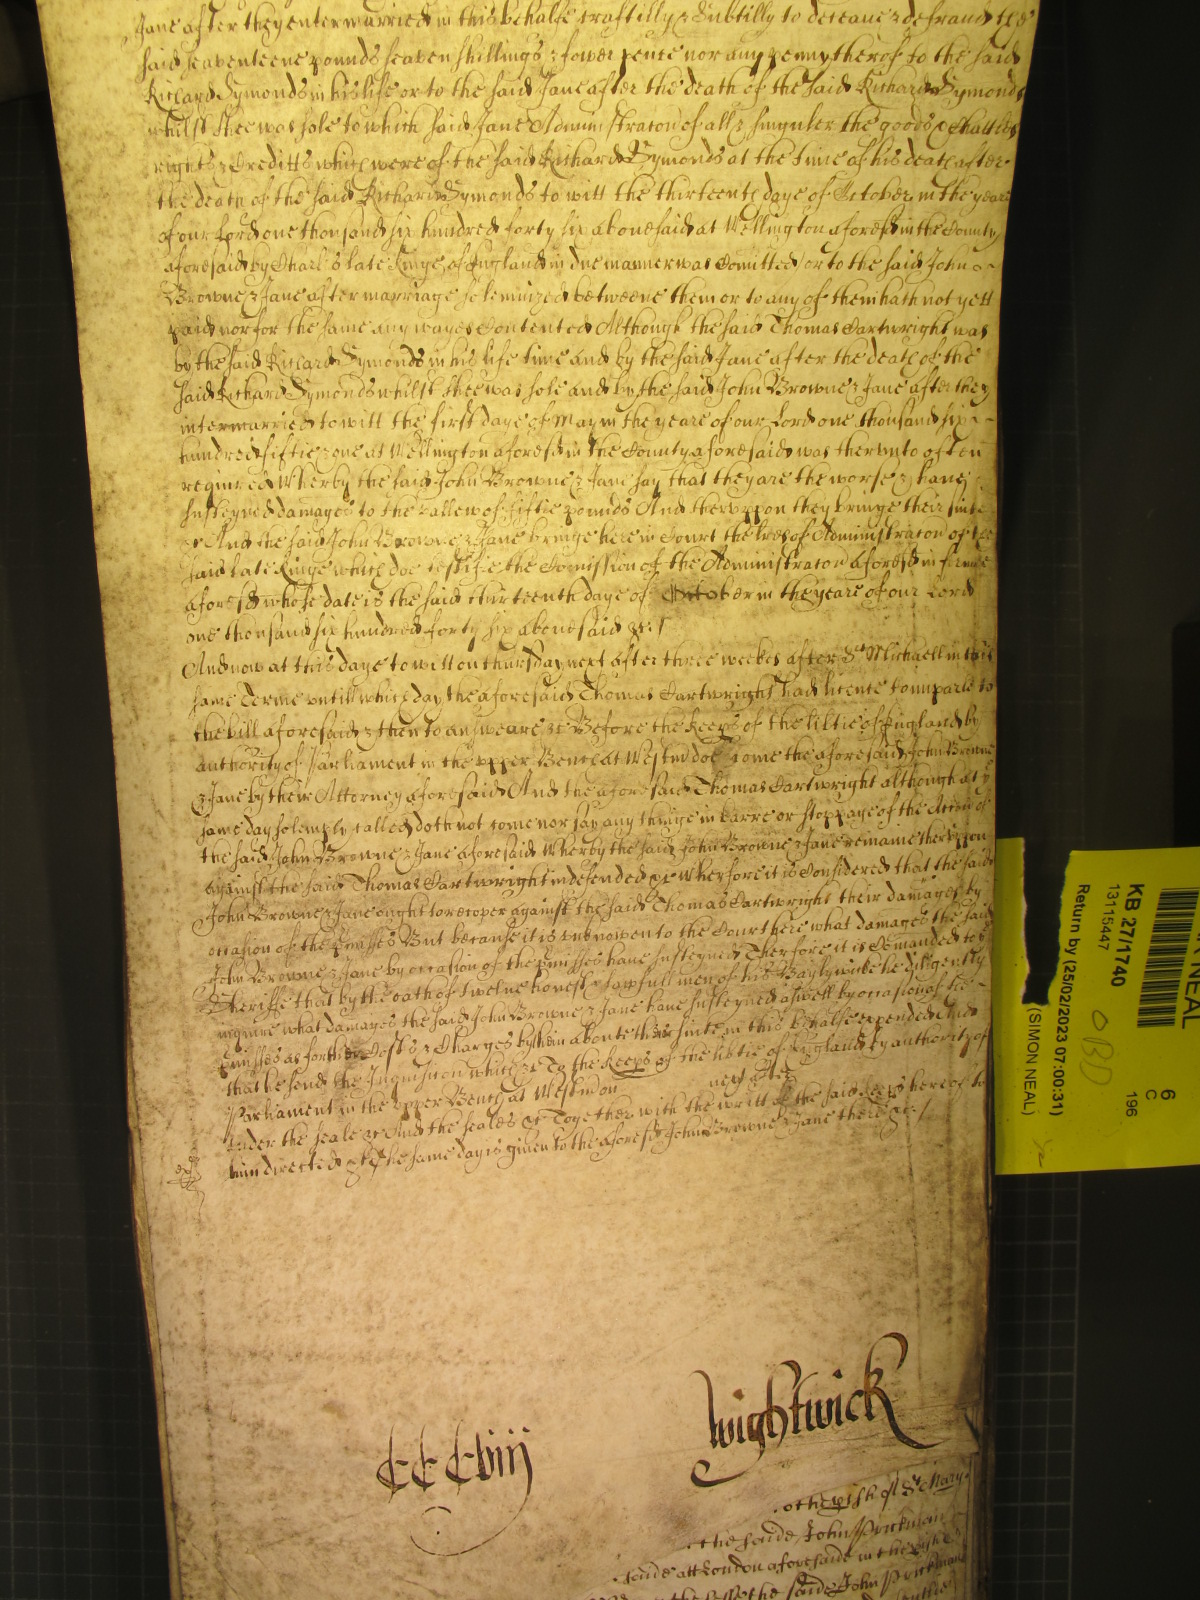 Jane after they entermarried in this behalfe craftilly & Subtilly to deceave & defraud the
said seaventeene pounds seaven shillings & fower pence nor any penny therof to the said
Richard Symonds in his life or to the said Jane after the death of the said Richard Symonds
whilst shee was sole to which said Jane Administracion of all & singuler the goods & Chattels
rights & Creditts which were of the said Richard Symonds at the time of his death after
the death of the said Richard Symonds to witt the thirteenth daye of October in the yeare
of our Lord one thousand six hundred forty six abovesaid at Wellington aforesd in the County
aforesaid by Charles late Kinge of England in due manner was Comitted or to the said John
Browne & Jane after marriage solemnized betweene them or to any of them hath not yett
paid nor for the same any wayes Contented Although the said Thomas Cartwright was
by the said Richard Symonds in his life time and by the said Jane after the death of the
said Richard Symonds whilst shee was sole and by the said John Browne & Jane after they
intermarried to witt the first daye of May in the yeare of our Lord one thousand six
hundred fiftie one at Wellington aforesd in the County aforesaid was therunto often
required Wherby the said John Browne & Jane say that they are the worse & have
susteyned damages to the vallew of fiftie pounds And therupon they bringe their suite
&c And the said John Browne & Jane bringe here in Court the tres of Administracon of the
said late Kinge which doe testifie the Comission of the Administracon aforesd in forme
aforesd whose date is the said thirteenth daye of October in the yeare of our Lord
one thousand six hundred forty six abovesaid &c./
And now at this daye to witt on thursday next after three weekes after St Michaell in this
same Terme untill which day the aforesaid Thomas Cartwright had licence to imparle to
the bill aforesaid & then to answeare &c Before the Keeps of the libtie of England by
authority of Parliament in the upper Bench at Westm doe come the aforesaid John Browne
& Jane by their Attorney aforesaid And the aforesaid Thomas Cartwright although at ye
same day solemply called doth not come nor say any thinge in barre or stoppage of the Accon of
the said John Browne & Jane aforesaid Wherby the said John Browne & Jane remaine therupon
against the said Thomas Cartwright indefended &c Wherfore it is Considered that the said
John Browne & Jane ought to recover against the said Thomas Cartwright their damages by
occasion of the pmisses But because it is unknowen to the Court here what damages the said
John Browne & Jane by occasion of the pmisses have susteyned Therfore it is Comanded to ye
Sheriffe that by the oath of twelve honest & lawfull men of his Baylywicke he diligently
inquire what damages the said John Browne & Jane have susteyned aswell by occasion of the
pmisses as for their Costs & Charges by them aboute their suite in this behalfe expended And
that he send the Inquisicon which &c To the Keeps of the libtie of England by authority of
Parliament in the upper Bench at Westm on next after
under the seale &c And the seales &c Together with the writt of the said Keeps hereof to
him directed &c The same day is given to the aforesd John Browne & Jane there &c./
CCCCviij
Wightwick
pish of St Mary
the saide John Prickman
saide att London aforesaide in the pishe
the saide John Prickman
NEAL
KB 27/1740
13115447
Return by (25/02/2023 07:00:31)
(SIMON NEAL)
6
C
196